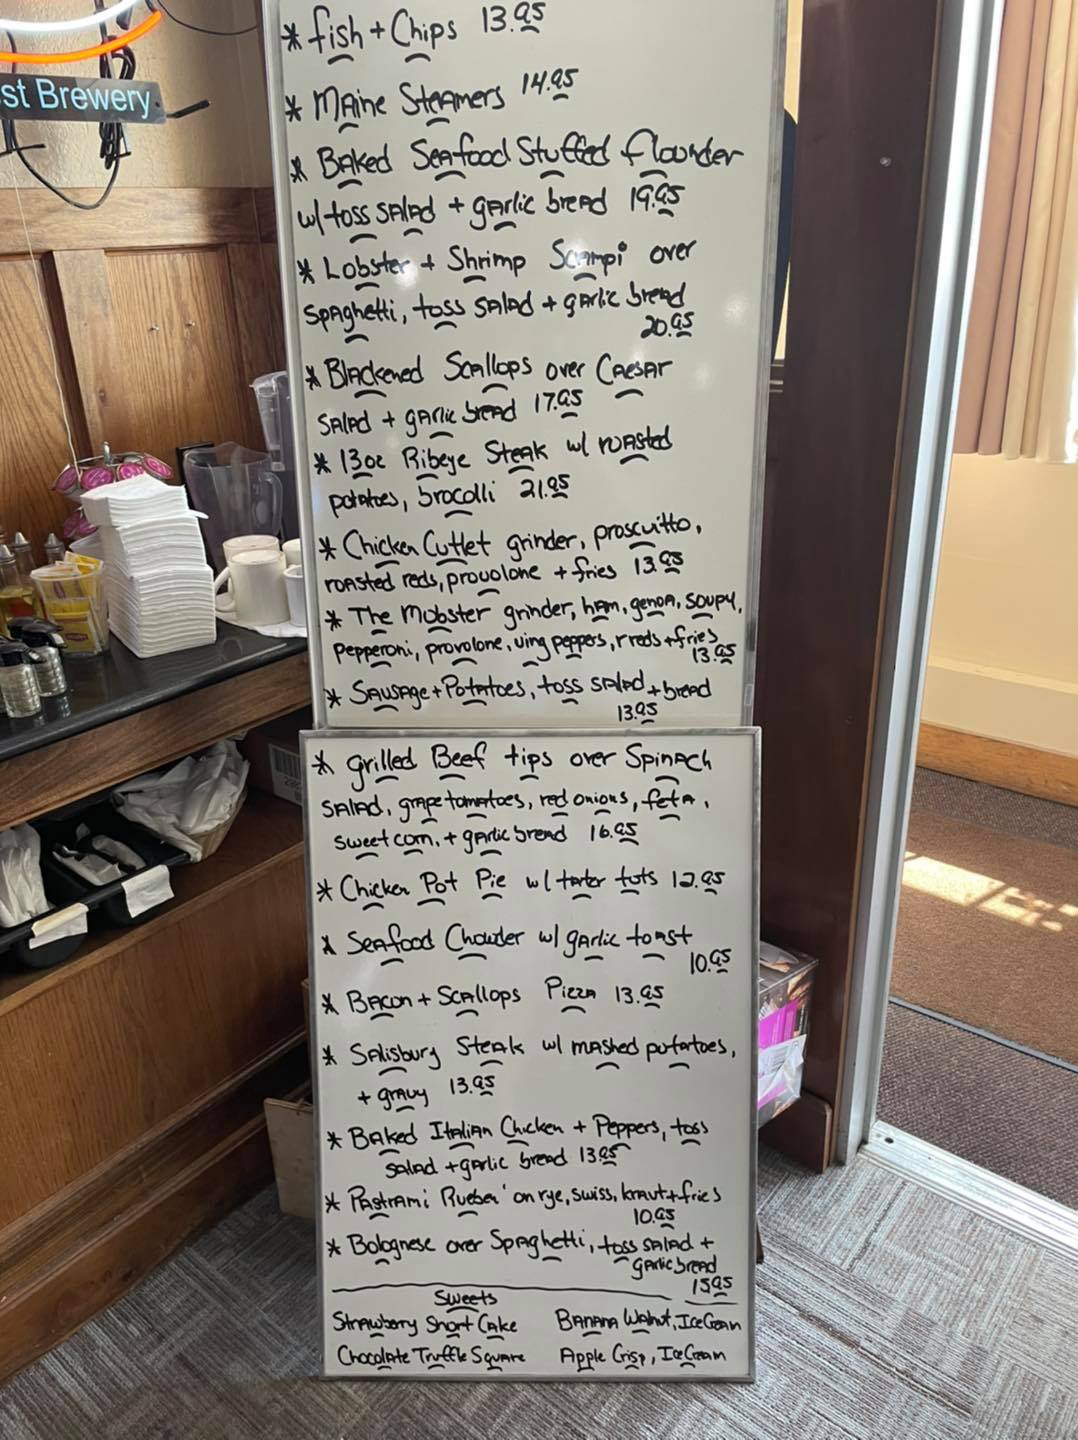 st Brewery
* fish + Chips 13.95
* Maine Steamers 14.95
* Baked Seafood Stuffed flounder
w/ toss salad + garlic bread 19.95
* Lobster + Shrimp Scampi over
spaghetti, toss salad + garlic bread
20.95
* Blackened Scallops over Caesar
salad + garlic bread 17.95
* 13oz Ribeye Steak w/ roasted
potatoes, brocolli 21.95
* Chicken Cutlet grinder, proscuitto,
roasted reds, provolone + fries 13.95
* The Mobster grinder, ham, genoa, soupy,
pepperoni, provolone, ving peppers, r reds + fries
13.95
* Sausage + Potatoes, toss salad + bread
13.95
* grilled Beef tips over Spinach
salad, grape tomatoes, red onions, feta,
sweet corn, + garlic bread 16.95
* Chicken Pot Pie w/ tarter tots 12.95
* Seafood Chowder w/ garlic toast
10.95
* Bacon + Scallops Pizza 13.95
* Salisbury Steak w/ mashed potatoes,
+ gravy 13.95
* Baked Italian Chicken + Peppers, toss
salad + garlic bread 13.95
* Pastrami Rueben on rye, swiss, kraut + fries
10.95
* Bolognese over Spaghetti, toss salad +
garlic bread
15.95
Sweets
Strawberry Short Cake
Banana Walnut, Ice Cream
Chocolate Truffle Square
Apple Crisp, Ice Cream